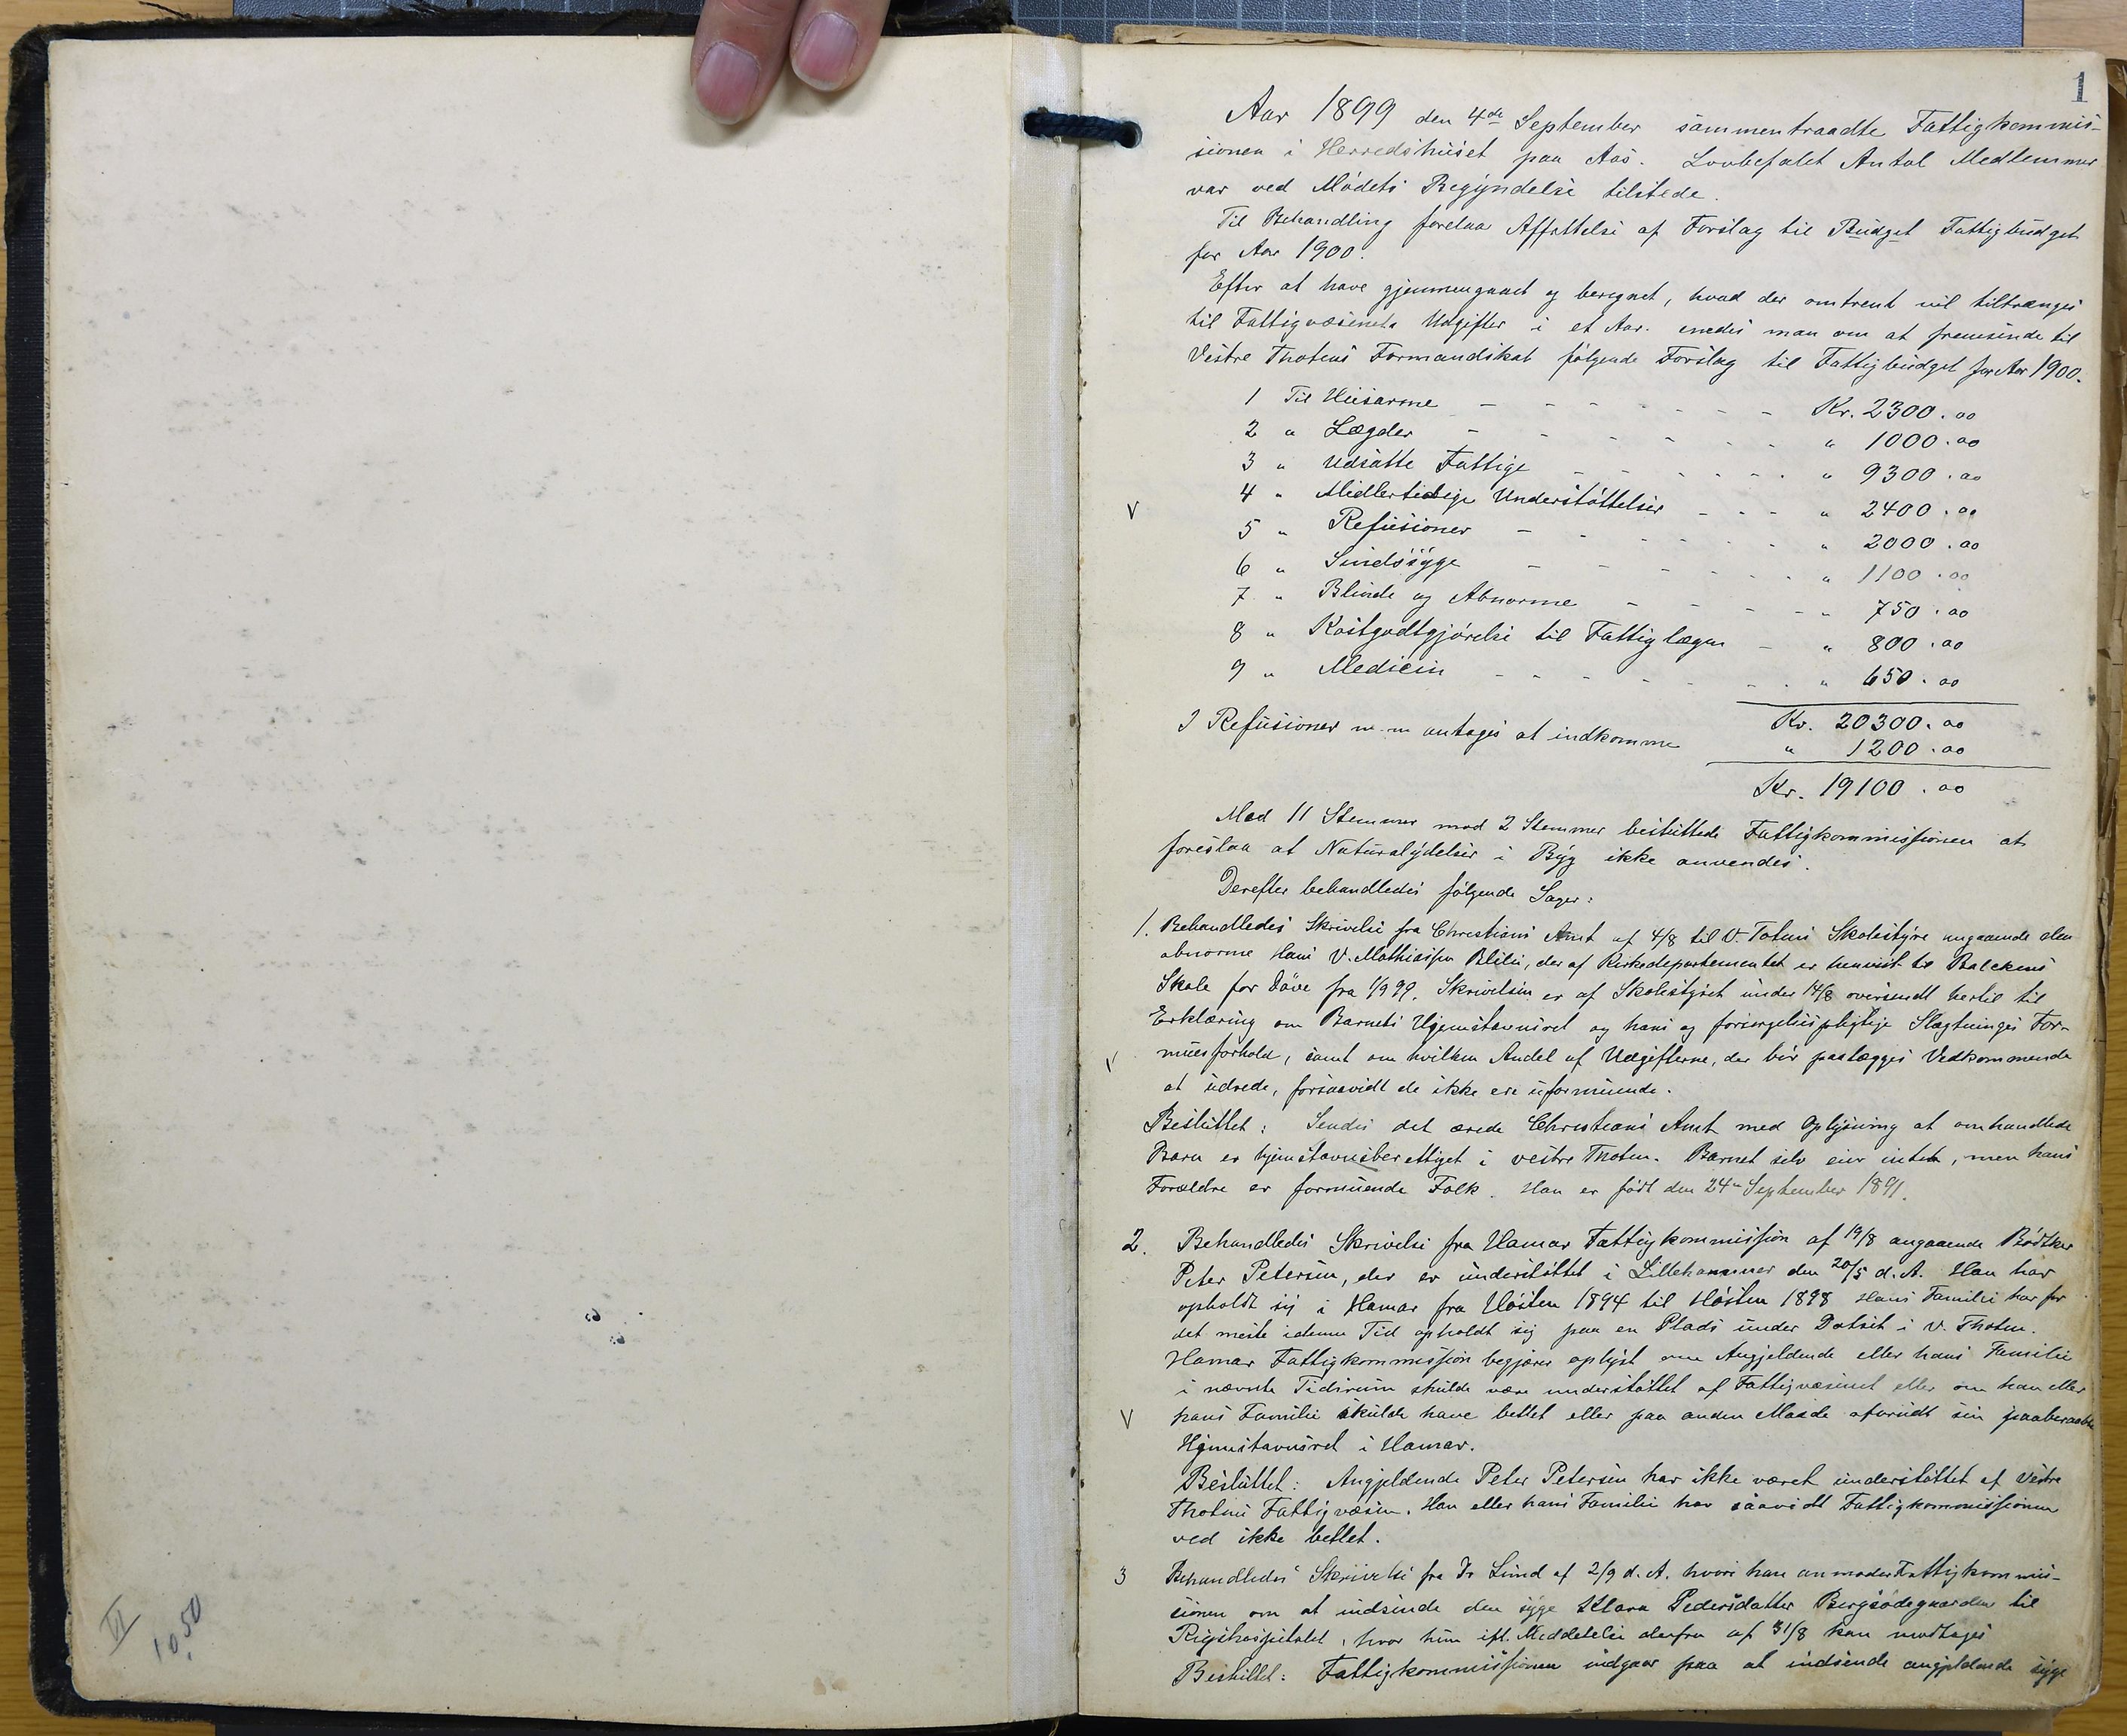 1
Aar 1899 den 4de September sammentraadte Fattigkommis-
sionen i Herredshuset paa Aas. Lovbefalet Antal Medlemmer
var ved Mødets Begyndelse tilstede.
Til Behandling forelaa Affattelse af Forslag til Budget Fattigbudget
for Aar 1900.
Efter at have gjennemgaaet og beregnet, hvad der omtrent vil tiltrænges
til Fattigvæsenets Udgifter i et Aar. enedes man om at fremsende til
Vestre Thotens Formandskab følgende Forslag til Fattigbudget for Aar 1900.
1 Til Husarme - - - - - - - Kr. 2300.00
2 " Lægder - - - - - - " 1000.00
3 " Udsatte Fattige - - - - - " 9300.00
4 " Midlertidige Understøttelser - - - " 2400.00
V
5 " Refusioner - - - - - " 2000.00
6 " Sindssyge - - - - - " 1100.00
7 " Blinde og Abnorme - - - - " 750.00
8 " Kostgodtgjørelse til Fattiglægen - " 800.00
9 " Medicin - - - - - - " 650.00
Kr. 20300.00
I Refusioner m.m antages at indkomme " 1200.00
Kr. 19100.00
Med 11 Stemmer mod 2 Stemmer besluttede Fattigkommissionen at
foreslaa at Naturalydelser i Byg ikke anvendes.
Derefter behandledes følgende Sager:
1. Behandledes Skrivelse fra Christians Amt af 4/8 til V. Totens Skolestyre angaaende den
abnorme Hans V. Mathiassen Blili, der af Kirkedepartementet er henvist til Balckens
Skole for Døve fra 1/9 99. Skrivelsen er af Skolestyret under 14/8 oversendt hertil til
Erklæring om Barnets Hjemstavnsret og hans og forsørgelsespligtige Slægtninges For-
muesforhold, samt om hvilken Andel af Udgifterne, der bør paalægges Vedkommende
V
at udrede, forsaavidt de ikke ere uformuende.
Besluttet: Sendes det ærede Christians Amt med Oplysning at omhandlede
Barn er hjemstavnsberettiget i vestre Thoten. Barnet selv eier intet, men hans
Forældre er formuende Folk. Han er født den 24de September 1891.
2. Behandledes Skrivelse fra Hamar Fattigkommission af 19/8 angaaende Bødtker
Peter Petersen, der er understøttet i Lillehammer den 20/5 d. A. Han har
opholdt sig i Hamar fra Høsten 1894 til Høsten 1898 Hans Familie har for
det meste i denne Tid opholdt sig paa en Plads under Dotset i V. Thoten.
Hamar Fattigkommission begjærer oplyst om Angjeldende eller hans Familie
i nævnte Tidsrum skulde være understøttet af Fattigvæsenet eller om han eller
V hans Familie skulde have betlet eller paa anden Maade afbrudt sin paaberaabte
Hjemstavnsret i Hamar.
Besluttet: Angjeldende Peter Petersen har ikke været understøttet af Vestre
Thotens Fattigvæsen. Han eller hans Familie har saavidt Fattigkommissionen
ved ikke betlet.
3 Behandledes Skrivelse fra Dr Lund af 2/9 d. A. hvori han anmoder Fattigkommis-
sionen om at indsende den syge Klara Pedersdatter Bergsødegaarden til
Rigshospitalet, hvor hun ifl. Meddelelse derfra af 31/8 kan modtages
Besluttet: Fattigkommissionen indgaar paa at indsende angjeldende syge
VI
10.50